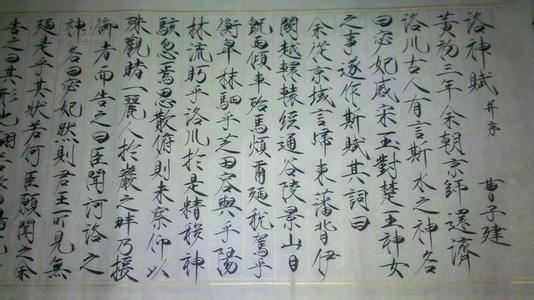 洛神賦 并序
曹子建
黃初三年余朝京師還濟
洛川古人有言斯水之神名
曰宓妃感宋玉對楚王神女
之事遂作斯賦其詞曰
余從京域言歸東藩背伊
闕越轘轅經通谷陵景山日
既西傾車殆馬煩爾乃稅駕乎
蘅皋秣駟乎芝田容與乎陽
林流眄乎洛川於是精移神
駭忽焉思散俯則未察仰以
殊觀睹一麗人於巖之畔乃援
御者而告之曰臣聞河洛之
神名曰宓妃然則君王所見無
迺是乎其狀若何臣願聞之余
告之曰其形也翩